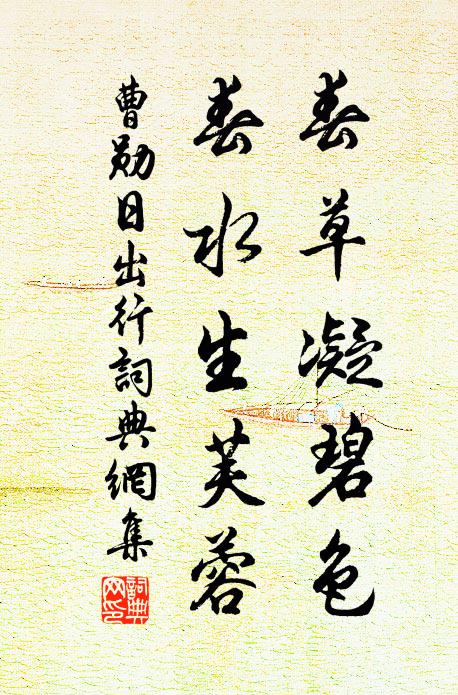 春草凝碧色
春水生芙蓉
曹勛日出行詞典網集
詞典網印